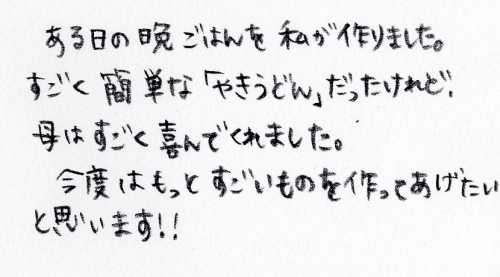 ある日の晩ごはんを私が作りました。
すごく簡単な「やきうどん」だったけれど、
母はすごく喜んでくれました。
今度はもっとすごいものを作ってあげたい
と思います!!